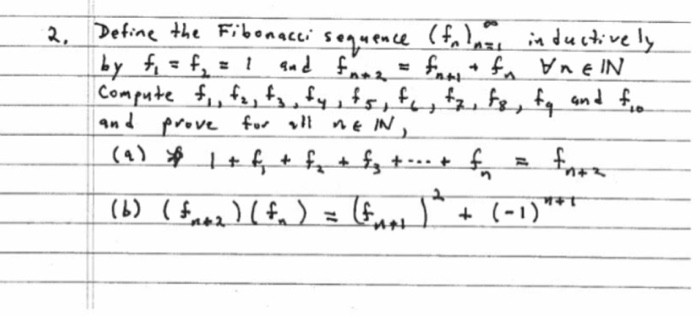 2. Define the Fibonacci sequence (fₙ)ₙ₌₁^∞ inductively
by f₁ = f₂ = 1 and fₙ₊₂ = fₙ₊₁ + fₙ ∀ n ∈ ℕ
Compute f₁, f₂, f₃, f₄, f₅, f₆, f₇, f₈, f₉ and f₁₀
and prove for all n ∈ ℕ,
(a) 1 + f₁ + f₂ + f₃ + ··· + fₙ = fₙ₊₂
(b) (fₙ₊₂)(fₙ) = (fₙ₊₁)² + (-1)ⁿ⁺¹